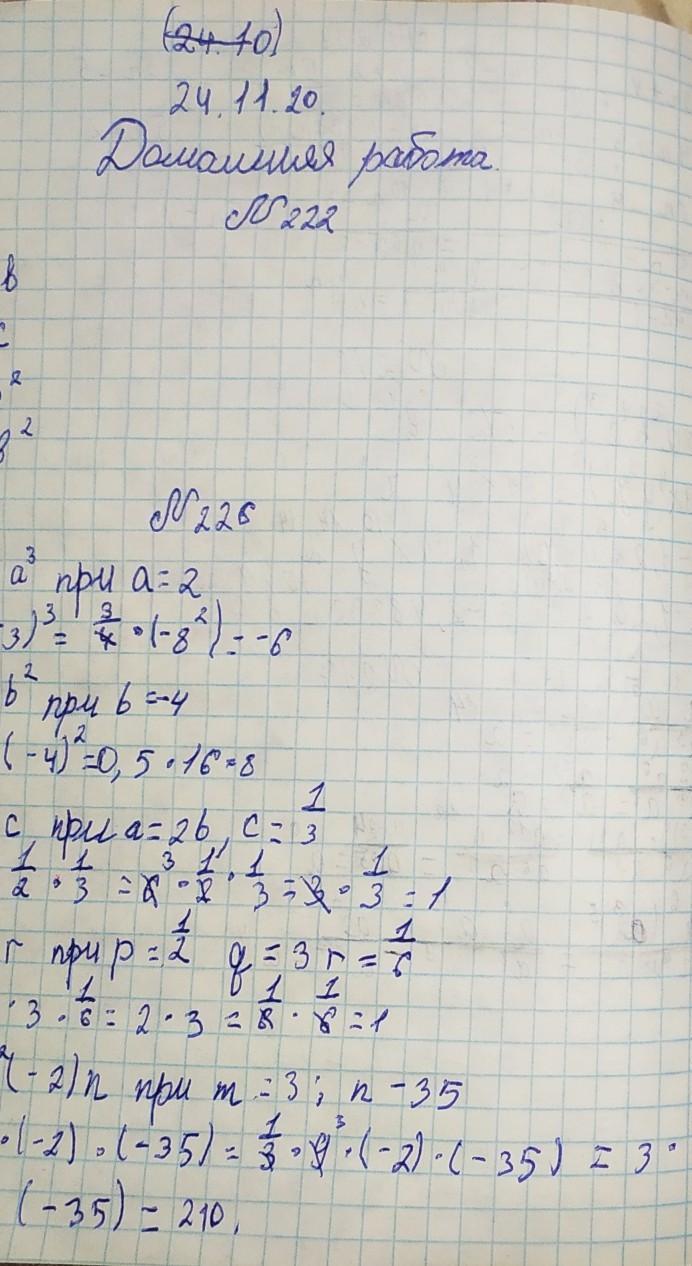 (24.10)
24.11.20.
Домашняя работа.
N222
b
c
2
b²
N226
a³ при a = 2
3)³ = 3/4 · (-8²) = -6
b² при b = -4
(-4)² = 0,5 · 16 = 8
c при a = 2b, c = 1/3
1/2 · 1/3 = 6³ · 1/2 · 1/3 = 3 · 1/3 = 1
r при p = 1/2 q = 3 r = 1/6
· 3 · 1/6 = 2 · 3 = 1/2 · 1/6 = 1
²(-2)n при m = 3; n - 35
· (-2) · (-35) = 1/3 · 9³ · (-2) · (-35) = 3 ·
(-35) = 210,